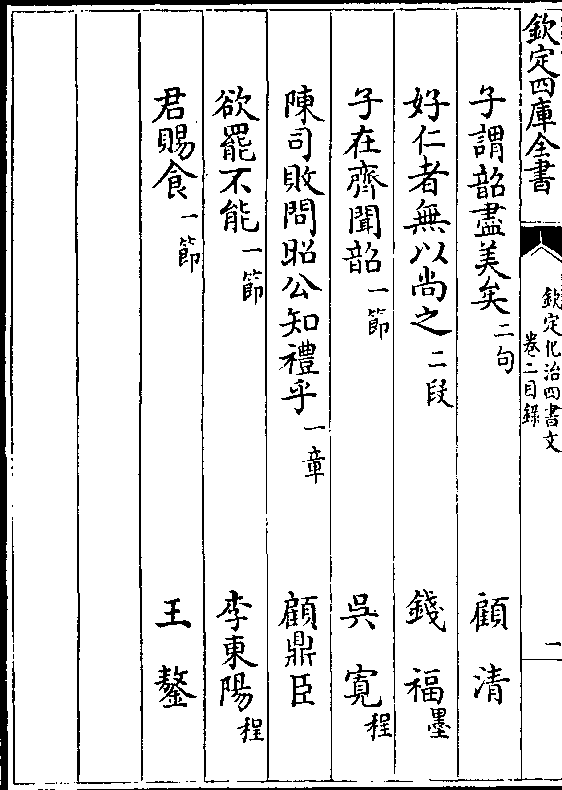 欽定四庫全書
欽定化治四書文
卷二目錄
一
子謂韶盡美矣二句 顧清
好仁者無以尚之二段 錢福墨
子在齊聞韶一節 吳寬程
陳司敗問昭公知禮乎一章 顧鼎臣
欲罷不能一節 李東陽程
君賜食一節 王鏊